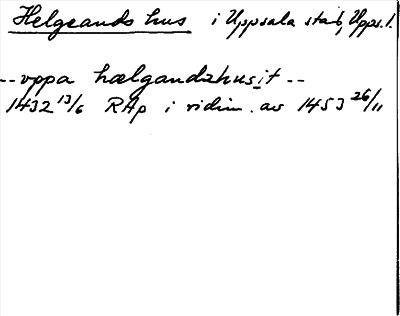 Helgeands hus i Uppsala stad, Upps. l.
-- vppa hælgandzhusit --
1432 13/6 RAp i vidim. av 1453 26/11